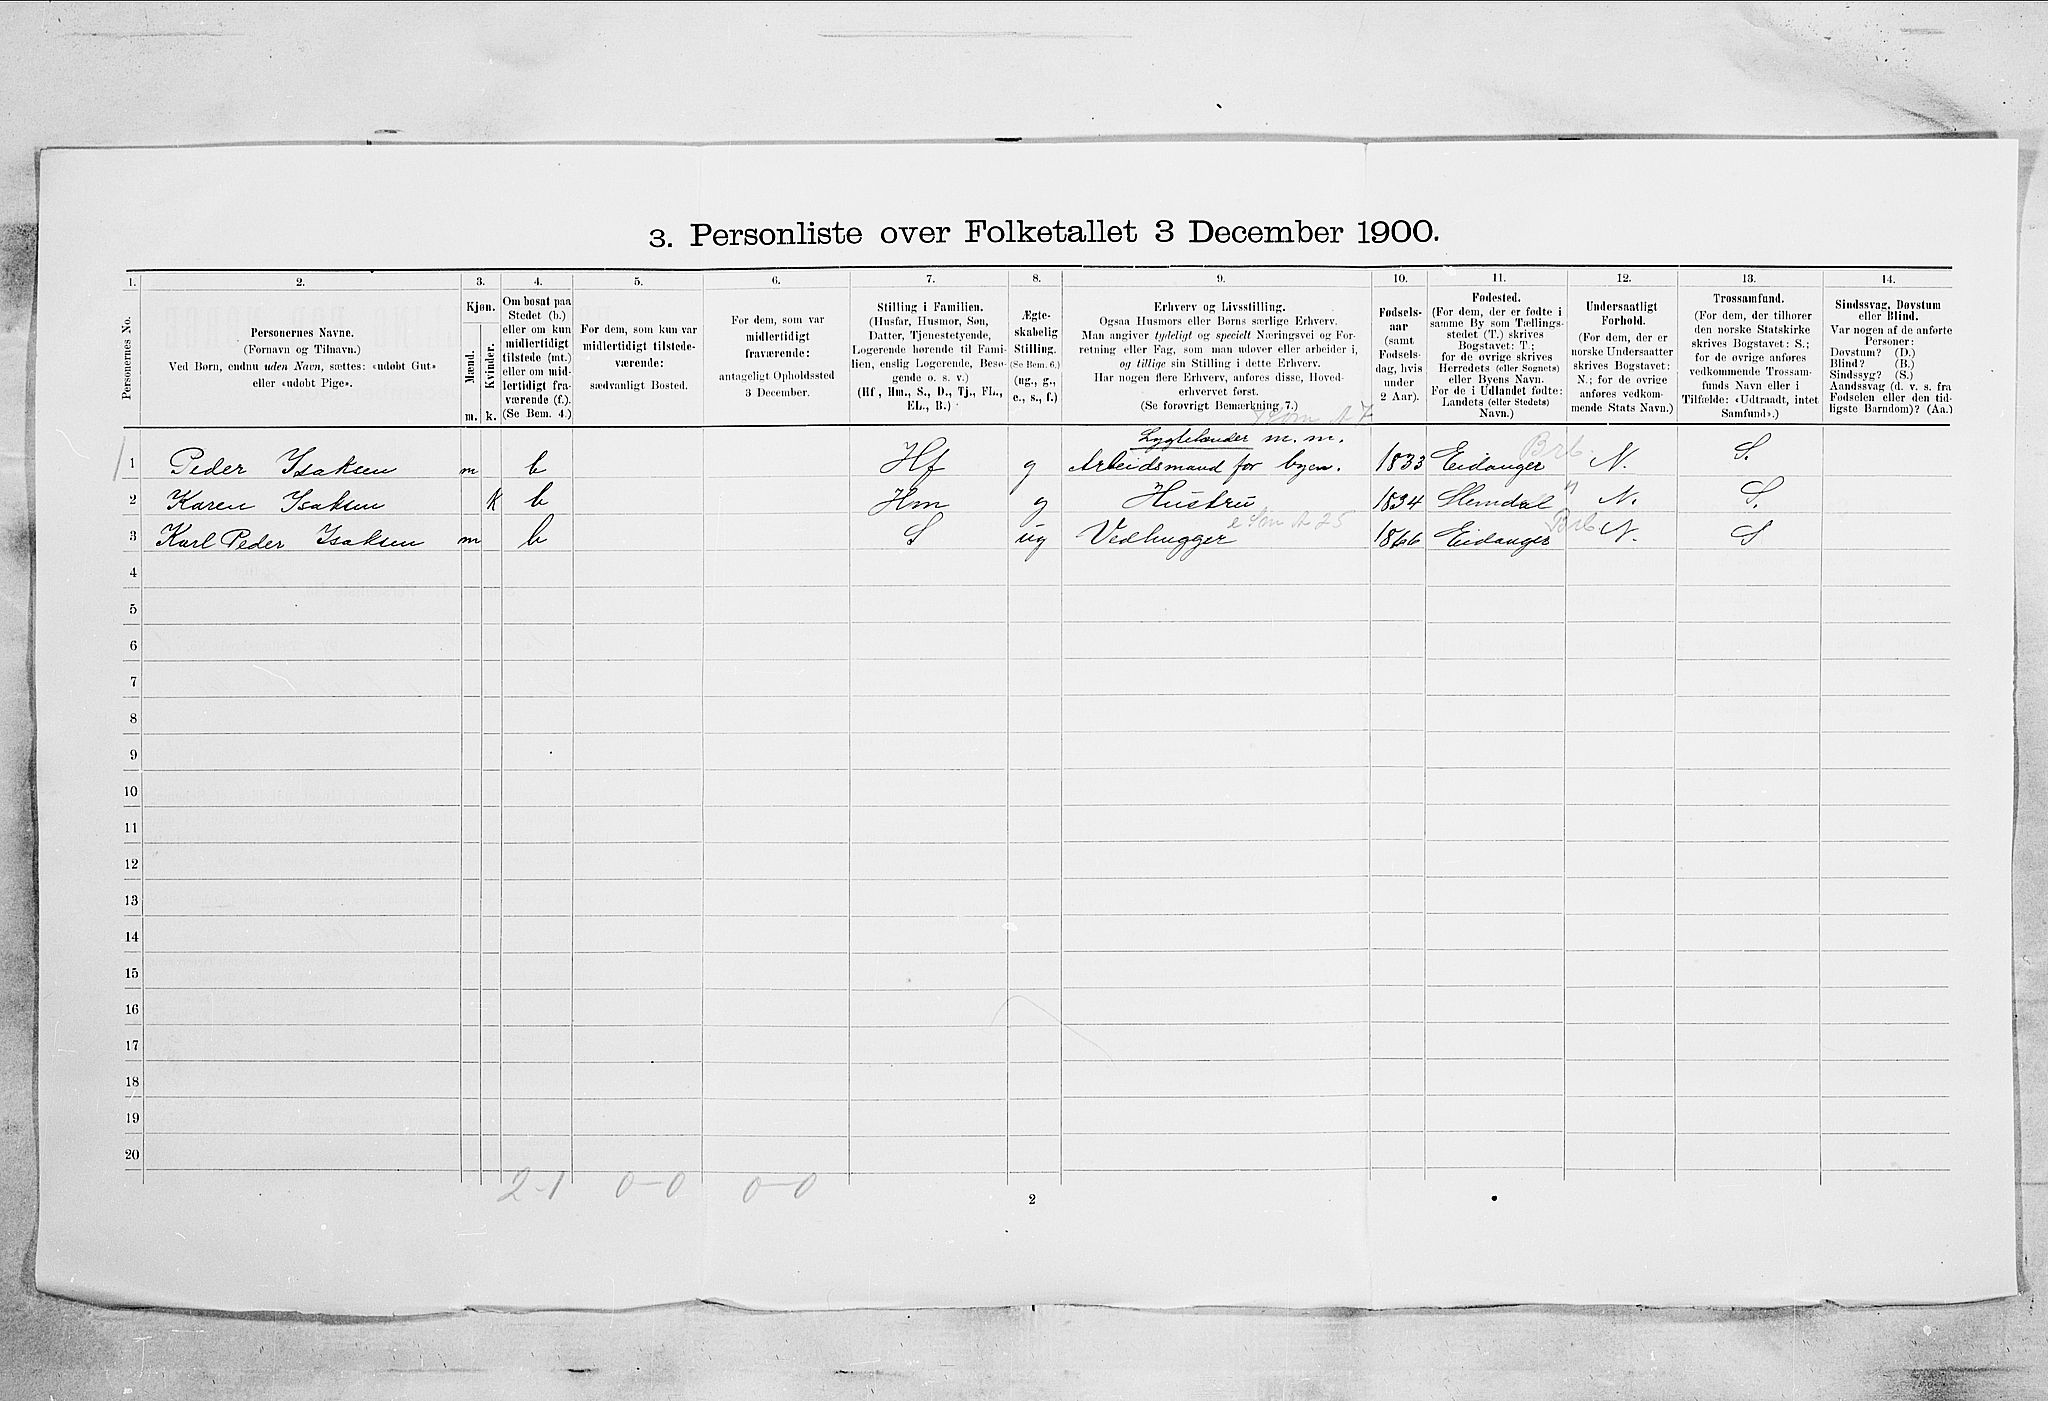 3. Personliste over Folketallet 3 December 1900.
1. 2. 3. 4. 5. 6. 7. 8. 9. 10. 11. 12. 13. 14.
Personernes No.
Personernes Navne.
(Fornavn og Tilnavn.)
Ved Børn, endnu uden Navn, sættes: «udøbt Gut»
eller «udøbt Pige».
Kjøn.
Mænd.
Kvinder.
m. k.
Om bosat paa
Stedet (b.)
eller om kun
midlertidigt
tilstede (mt.)
eller om mid-
lertidigt fra-
værende (f.).
(Se Bem. 4.)
For dem, som kun var
midlertidigt tilstede-
værende:
sædvanligt Bosted.
For dem, som var
midlertidigt
fraværende:
antageligt Opholdssted
3 December.
Stilling i Familien.
(Husfar, Husmor, Søn,
Datter, Tjenestetyende,
Logerende hørende til Fami-
lien, enslig Logerende, Besø-
gende o. s. v.)
(Hf., Hm., S., D., Tj., FL.,
EL., B.)
Ægte-
skabelig
Stilling.
(Se Bem. 6.)
(ug., g.,
e., s., f.)
Erhverv og Livsstilling.
Ogsaa Husmors eller Børns særlige Erhverv.
Man angiver tydeligt og specielt Næringsvei og For-
retning eller Fag, som man udøver eller arbeider i,
og tillige sin Stilling i dette Erhverv.
Har nogen flere Erhverv, anføres disse, Hoved-
erhvervet først.
(Se forøvrigt Bemærkning 7.)
Fødsels-
aar
(samt
Fødsels-
dag, hvis
under
2 Aar).
Fødested.
(For dem, der er fødte i
samme By som Tællings-
stedet (T.) skrives
Bogstavet: T.;
for de øvrige skrives
Herredets (eller Sognets)
eller Byens Navn.
For de i Udlandet fødte:
Landets (eller Stedets)
Navn.)
Undersaatligt
Forhold.
(For dem, der er
norske Undersaatter
skrives Bogstavet:
N.; for de øvrige
anføres vedkom-
mende Stats Navn.)
Trossamfund.
(For dem, der tilhører
den norske Statskirke
skrives Bogstavet: S.;
for de øvrige anføres
vedkommende Trossam-
funds Navn eller i
Tilfælde: «Udtraadt, intet
Samfund».)
Sindssvag, Døvstum
eller Blind.
Var nogen af de anførte
Personer:
Døvstum? (D.)
Blind? (B.)
Sindssyg? (S.)
Aandssvag (d. v. s. fra
Fødselen eller den tid-
ligste Barndom)? (Aa.)
Lygtetænder m. m.
1 Peder Isaksen m b Hf g Arbeidsmand for byen. 1833 Eidanger Brb. N. S.
2 Karen Isaksen K b Hm g Hustru 1834 Slemdal N. S.
3 Karl Peder Isaksen m b S ug Vedhugger 1866 Eidanger Brb N. S
4
5
6
7
8
9
10
11
12
13
14
15
16
17
18
19
20
2-1 0-0 0-0
2